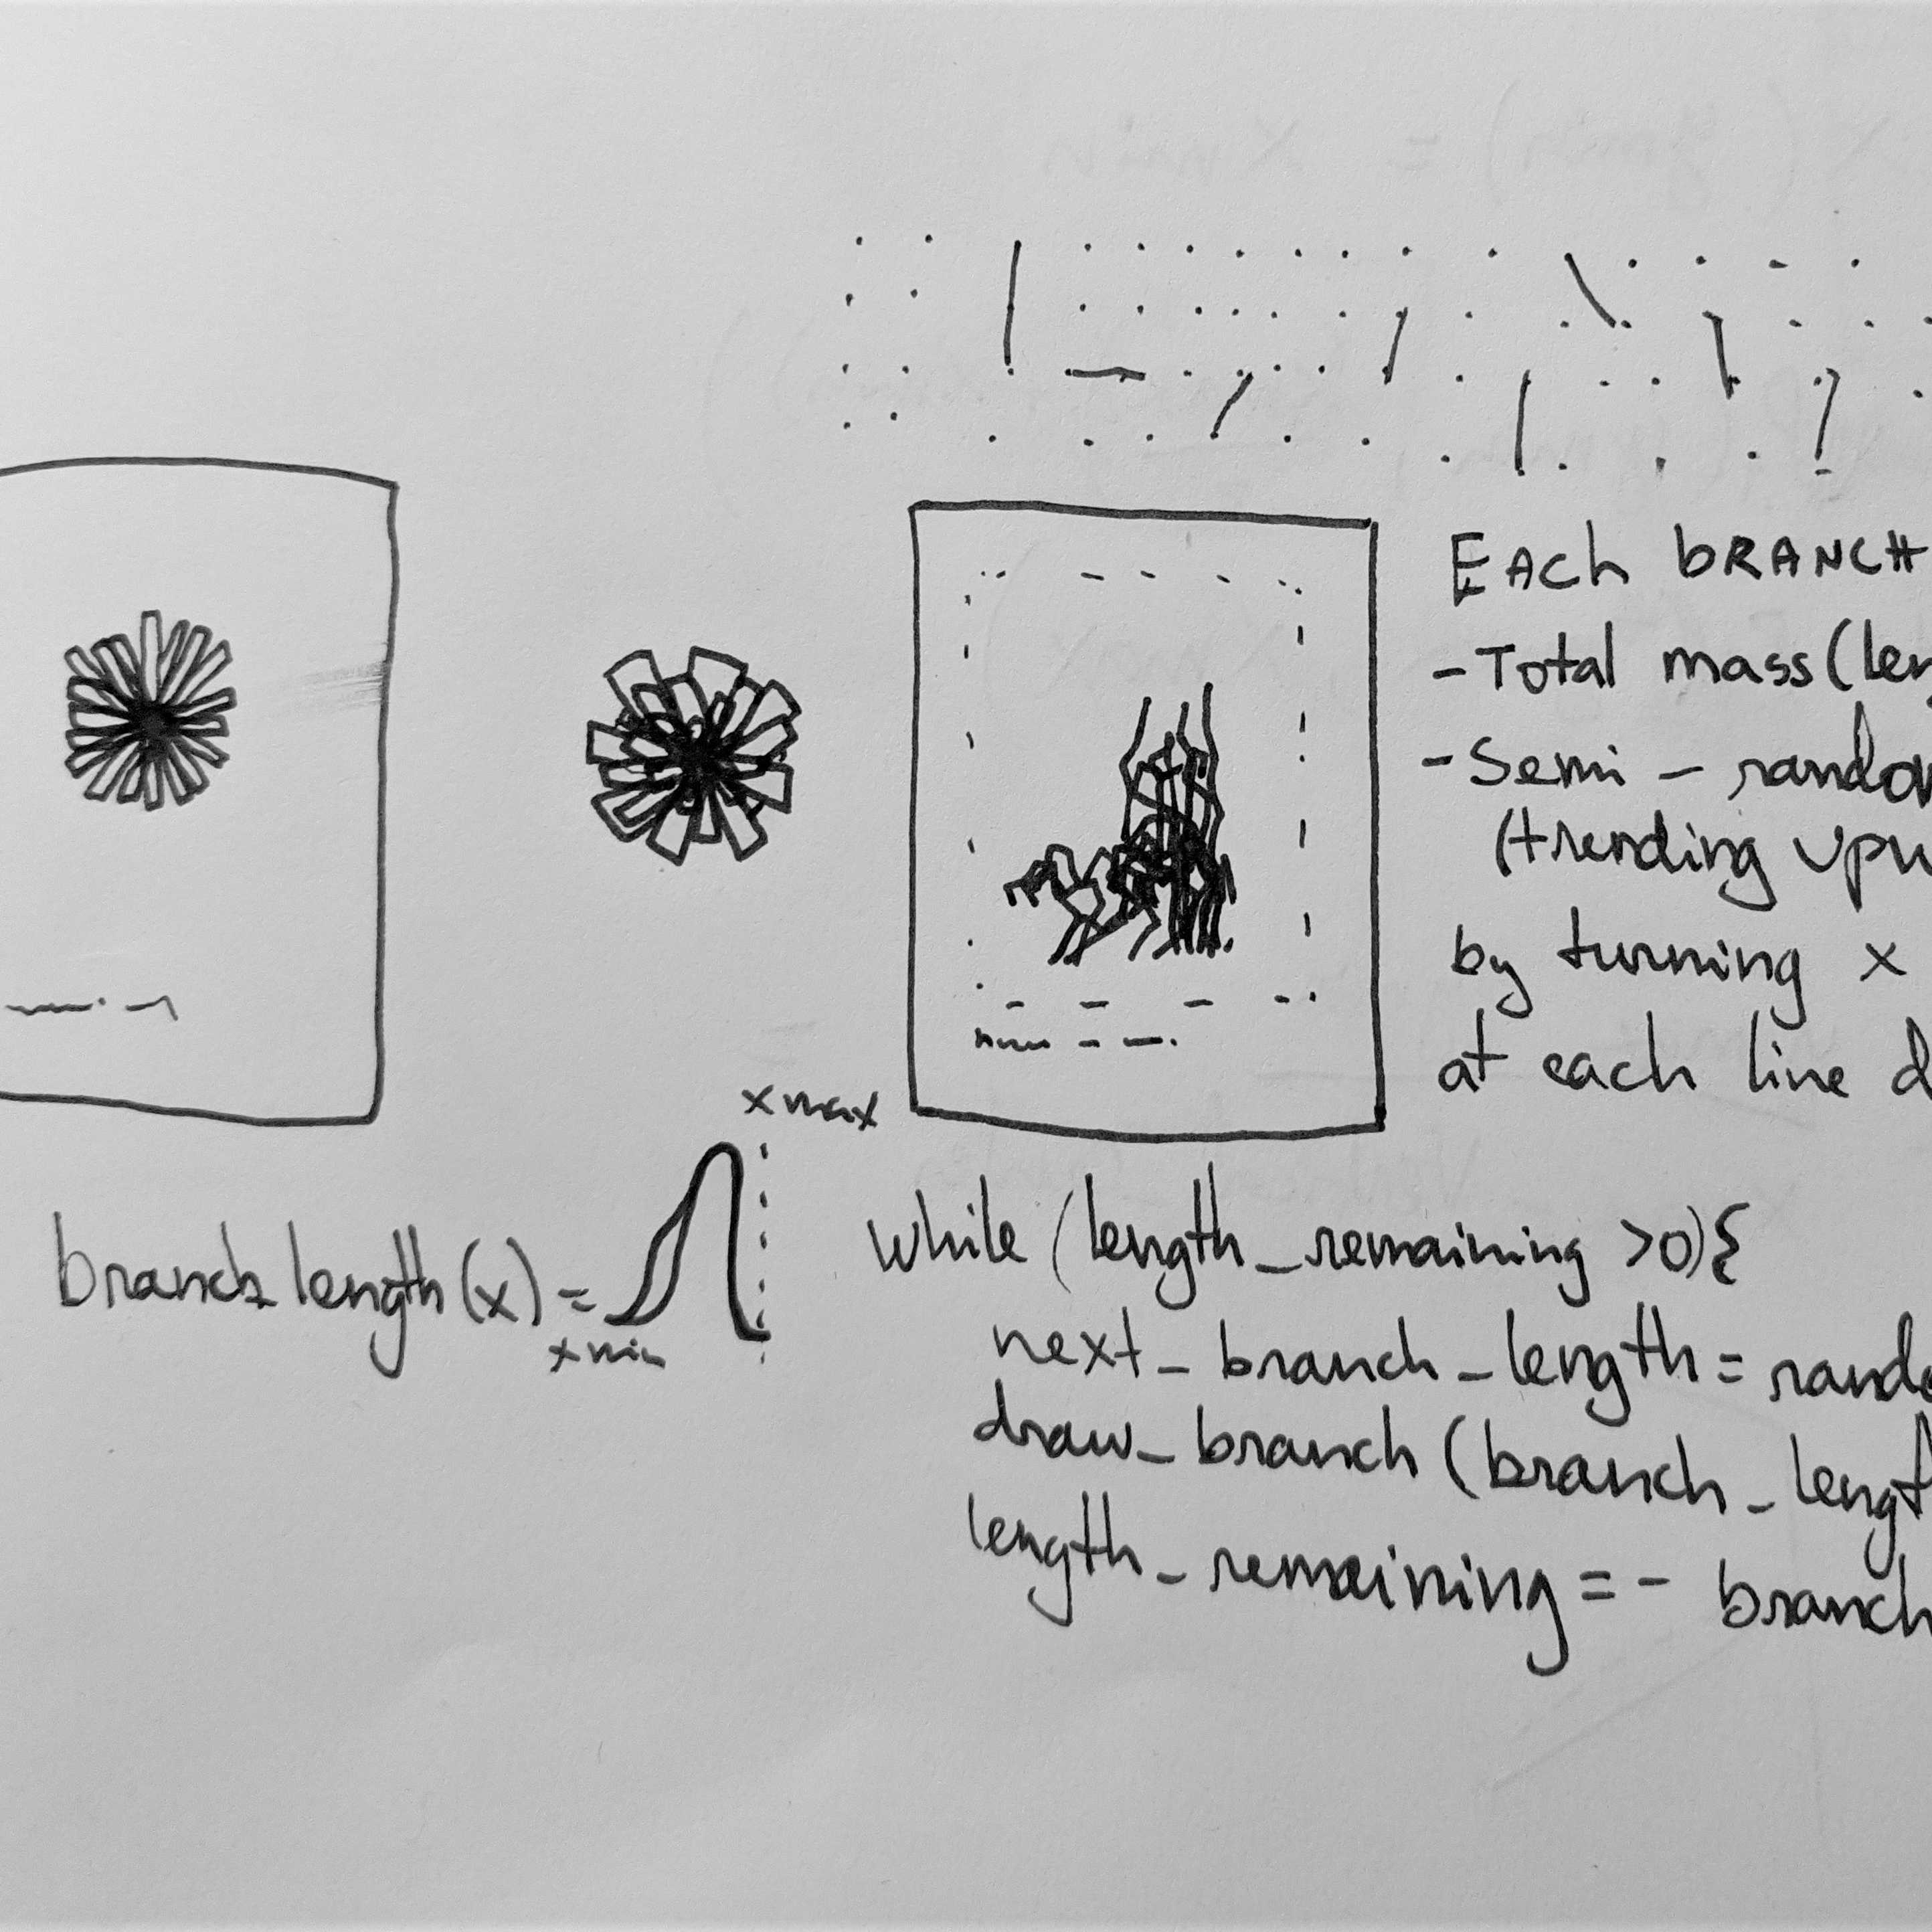 EACH BRANCH
- Total mass (len
- Semi - random
(trending upw
by turning x
at each line d
x max
branch_length (x) =
x min
while (length_remaining >0){
next_branch_length = rando
draw_branch (branch_lengt
length_remaining = - branch